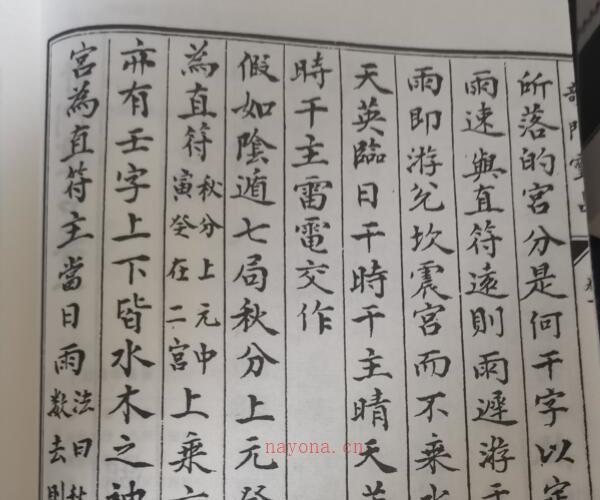 所落的宮分是何干字以定
雨速與直符遠則雨遲游于
雨即游兊坎震宮而不乘水
天英臨日干時干主晴天英
時干主雷電交作
假如陰遁七局秋分上元癸
為直符秋分上元中寅癸在二宮上乘六
亦有壬字上下皆水木之神
宮為直符主當日雨法曰數去則
nayona.cn